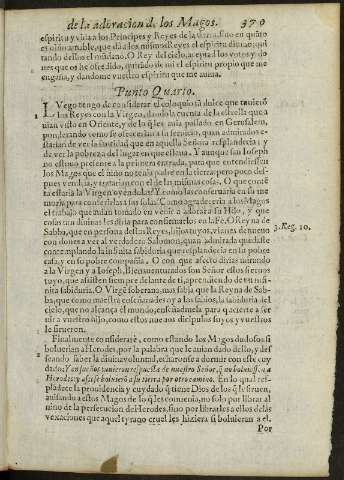 de la adoracion d los Magos. 370
espiritu y vida a los Principes y Reyes de la tierra, sino en quãto
es niño amable, que dà a los mismos Reyes el espiritu diuino, qui
tando dellos el mũdano. O Rey del cielo, acepta los votos y do
nes que os hè ofrecido, quitãdo de mi el espiritu propio que me
engaña, y dandome vuestro espiritu que me auiua.
Punto Quarto.
LVego tengo de considerar el coloquio tã dulce que tuuierõ
los Reyes con la Virgen, dandola cuenta de la estrella que a
uian visto en Oriente, y de lo q̃ les auia passado en Gerusalem,
ponderando como se ofrecerian a su seruicio, quan admirados e-
starian de ver la santidad que en aquella Señora resplandecia: y
de ver la pobreza del lugar en que estaua. Y aunque san Ioseph
no estuuo presente a la primera entrada, para que entendiessen
los Magos que el niño no tenia padre en la tierra, pero poco des-
pues vendria, y tratarian con el de las mismas cosas. O que contẽ
ta estaria la Virgen oyendolas! Y como las conseruaria en su me
moria para conferirlas a sus solas! Como agradeceria a los Magos
el trabajo que auian tomado en venir a adorar a su Hijo, y que
cosas tan diuinas les diria para confirmarlos en la Fè. O Reyna de
Sabba, que en persona destos Reyes, hijos tuyos, vienes de nueuo 3. Reg. 10.
con dones a ver al verdadero Salomon, quan admirada quedaste
contemplando la infinita sabiduria que resplandecia en su pobre
casa, y en su pobre compañia. O con que afecto dirias mirando
a la Virgen y a Ioseph, Bienauenturados son Señor estos sieruos
tuyos, que assisten siempre delante de ti, aprendiendo de tu infi-
nita sabiduria. O Virgẽ soberana, mas sabia que la Reyna de Sab-
ba, que como maestra enseñaredes oy a los sabios, la sabiduria del
cielo, que no alcança el mundo, enseñadmela para que acierte a ser
uir a vuestro hijo, como estos nueuos discipulos suyos y vuestros
le siruieron.
Finalmente considerarè, como estando los Magos dudosos si
boluerian a Herodes, por la palabra que le auian dado dello, y des
seando saber la diuina voluntad, echaronse a dormir con este cuy
dado: Y en sueños tuuieron respuesta de nuestro Señor, q̃ no boluiessẽ a
Herodes: y assi se boluierõ a su tierra por otro camino. En lo qual res-
plãdece la prouidencia y cuydado q̃ tiene Dios de los q̃ le siruen,
auisando a estos Magos de lo q̃ les conuenia, no solo por librar al
niño de la persecucion de Herodes, sino por librarles a ellos delas
vexaciones que aquel tyrano cruel les hiziera si boluieran a el.
Por